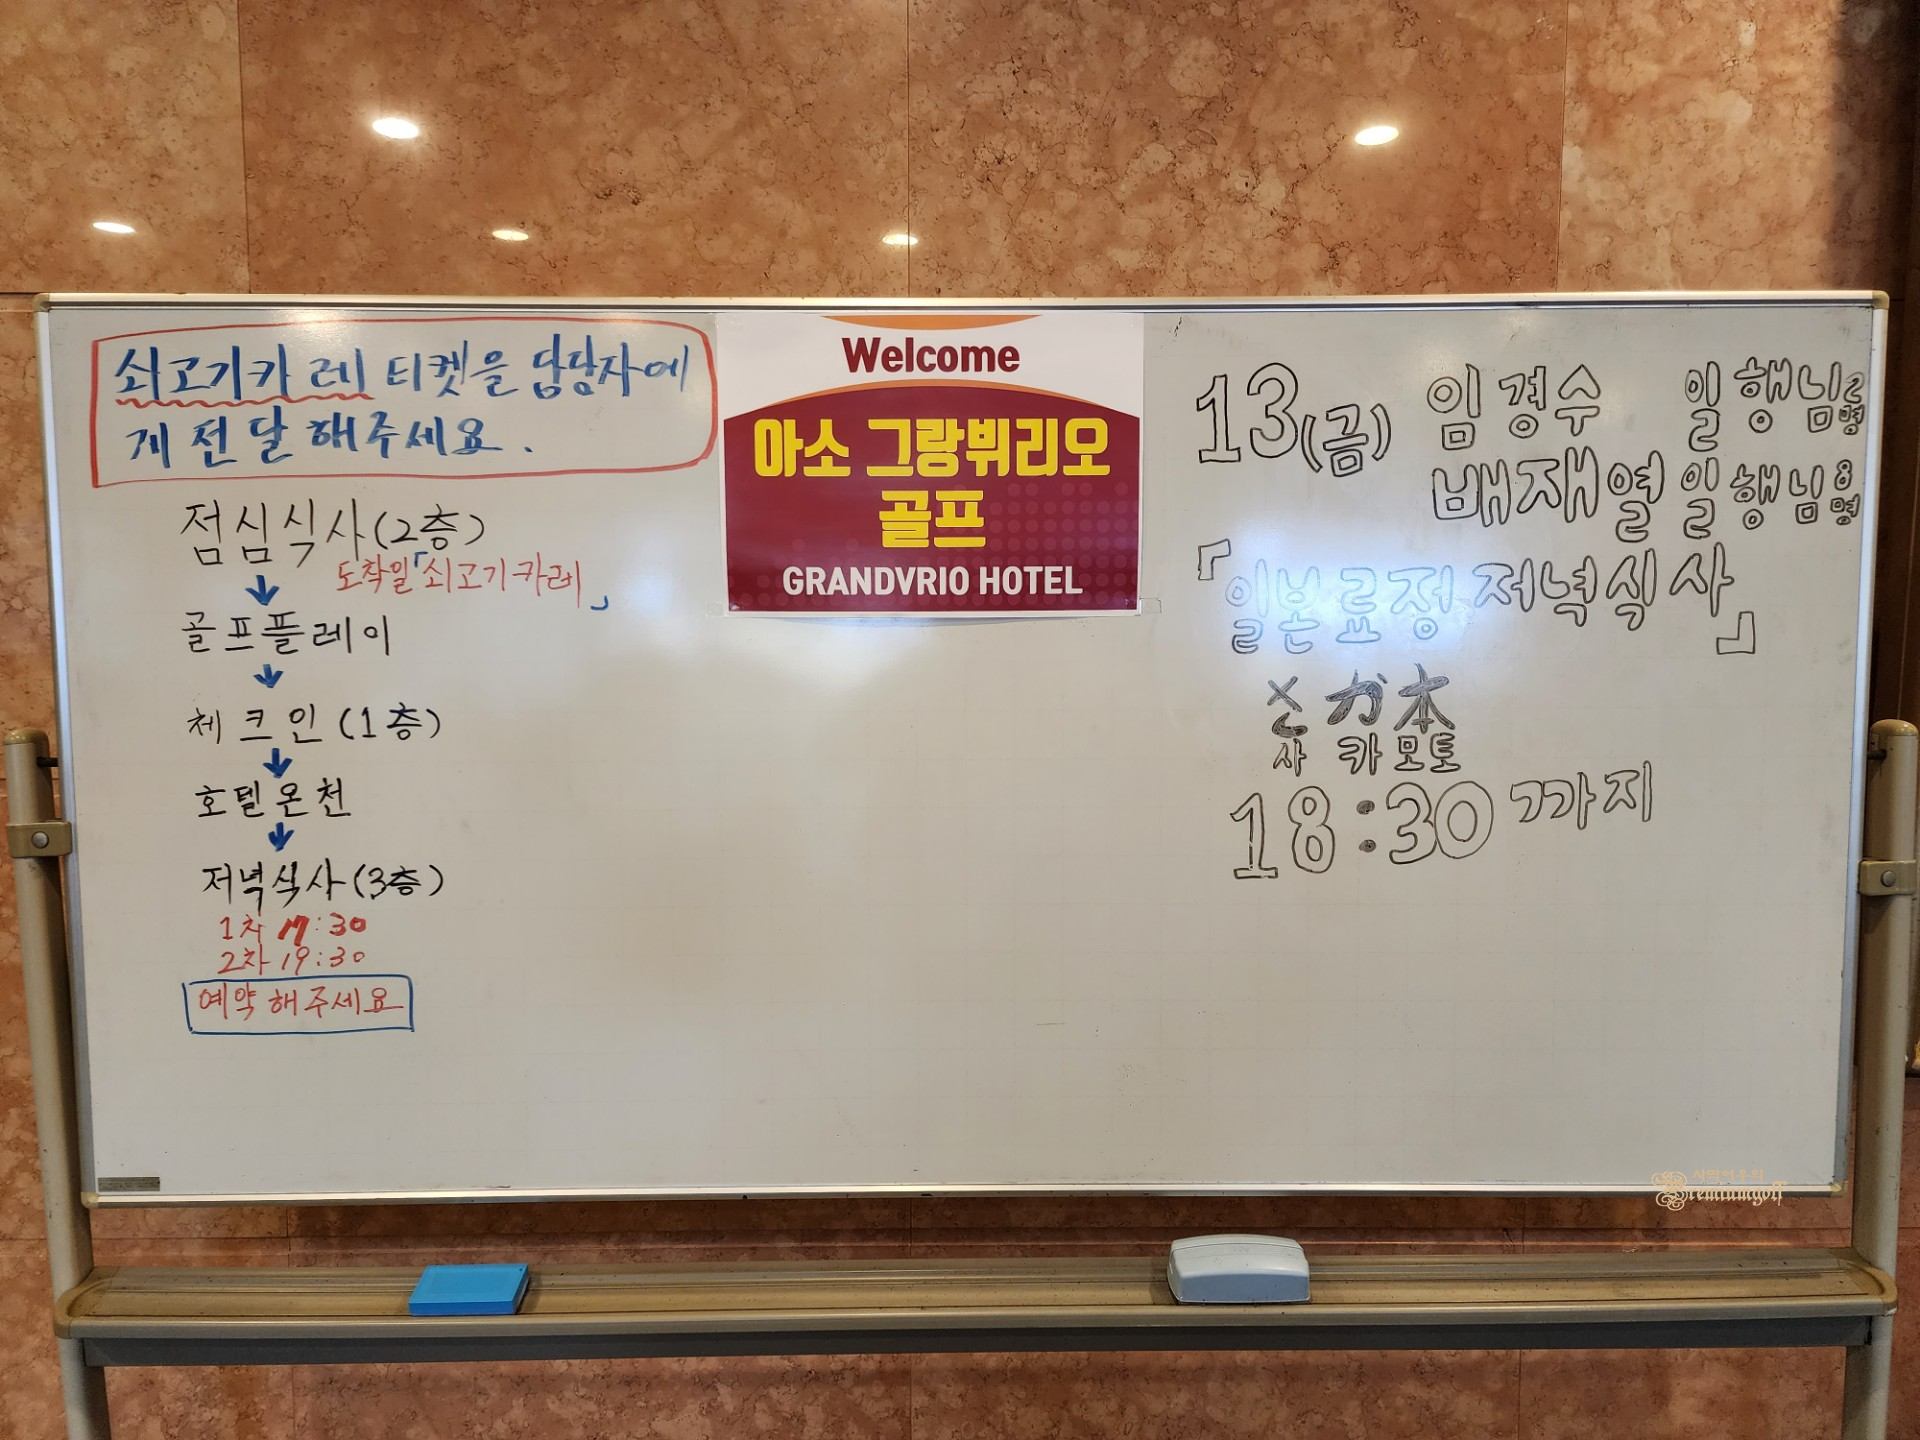 쇠고기카레 티켓을 담당자에
게 전달해주세요.
점심식사(2層)
도착일「쇠고기카레」
골프플레이
체크인(1層)
호텔온천
저녁식사(3層)
1차 17:30
2차 19:30
예약해주세요
Welcome
아소 그랑뷔리오
골프
GRANDVRIO HOTEL
13(금) 임경수 일행님2명
배재열 일행님8명
「일본료정 저녁식사」
사카모토
18:30 까지
사막여우의
Premiumgolf